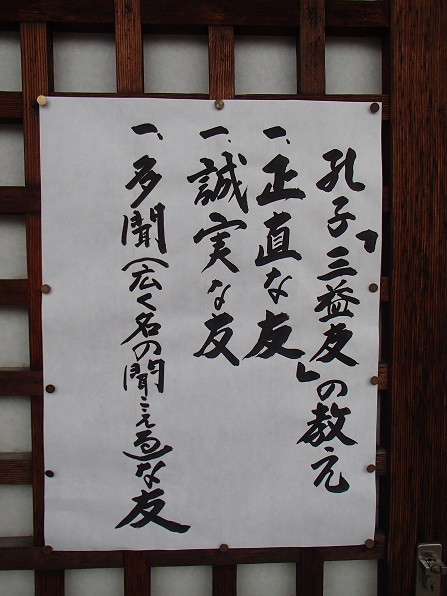 孔子「三益友」の教え
一、正直な友
一、誠実な友
一、多聞（広く名の聞こえる）な友